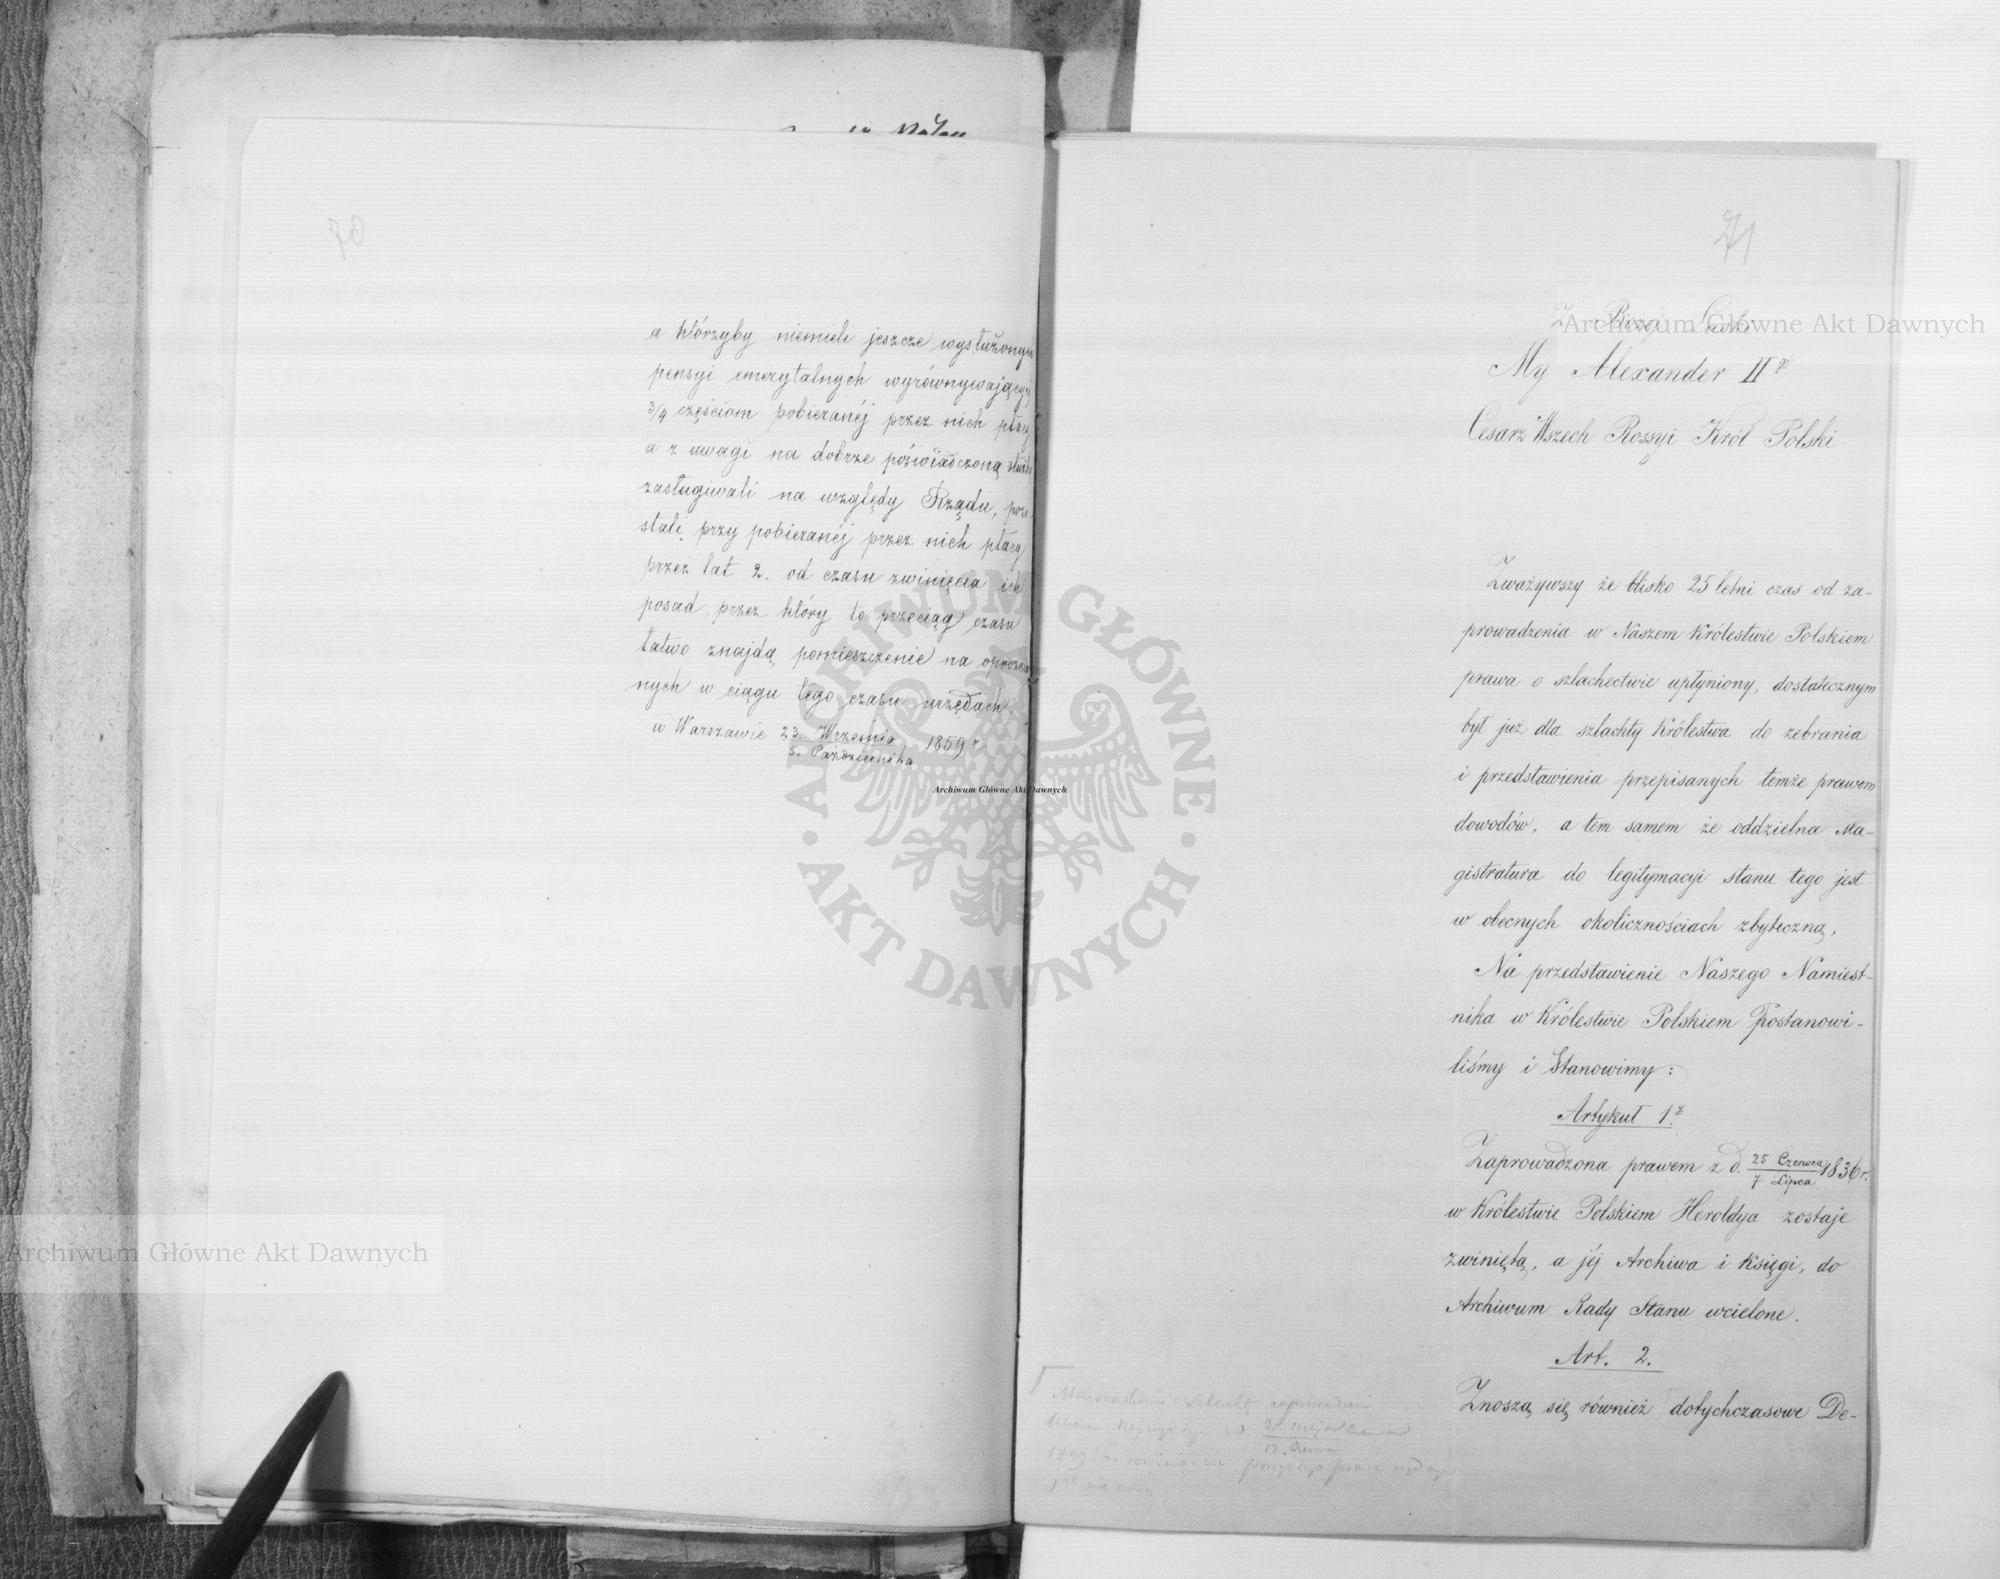 a którzyby niemieli jeszcze wysłużonych
pensyi emerytalnych wyrównywających
3/4 częściom pobieranéj przez nich płacy
a z uwagi na dobrze poświadczoną służbę
zasługiwali na względy Rządu, pozo-
stali przy pobieranéj przez nich płacy
przez lat 2. od czasu zwinięcia ich
posad, przez który to przeciąg czasu
łatwo znajdą pomieszczenie na opróżnio
nych w ciągu tego czasu urzędach.
w Warszawie 23. Września / 5. Października 1859 r.
71
Z Bożej Łaski
My Alexander II gi
Cesarz Wszech Rossyi Król Polski
Zważywszy że blisko 25 letni czas od za-
prowadzenia w Naszem Królestwie Polskiem
prawa o szlachectwie upłyniony, dostatecznym
był już dla szlachty Królestwa do zebrania
i przedstawienia przepisanych temże prawem
dowodów, a tem samem że oddzielna Ma-
gistratura do legitymacyi stanu tego jest
w obecnych okolicznościach zbyteczną,
Na przedstawienie Naszego Namiest-
nika w Królestwie Polskiem Postanowi-
liśmy i Stanowimy:
Artykuł 1.
Zaprowadzona prawem z d. 25 Czerwca / 7 Lipca 1836 r.
w Królestwie Polskiem Heroldya zostaje
zwiniętą, a jéj Archiwa i Księgi, do
Archiwum Rady Stanu wcielone.
Art. 2.
Znoszą się również dotychczasowe De-
Archiwum Główne Akt Dawnych
Archiwum Główne Akt Dawnych
Archiwum Główne Akt Dawnych
ARCHIWUM GŁÓWNE
AKT DAWNYCH